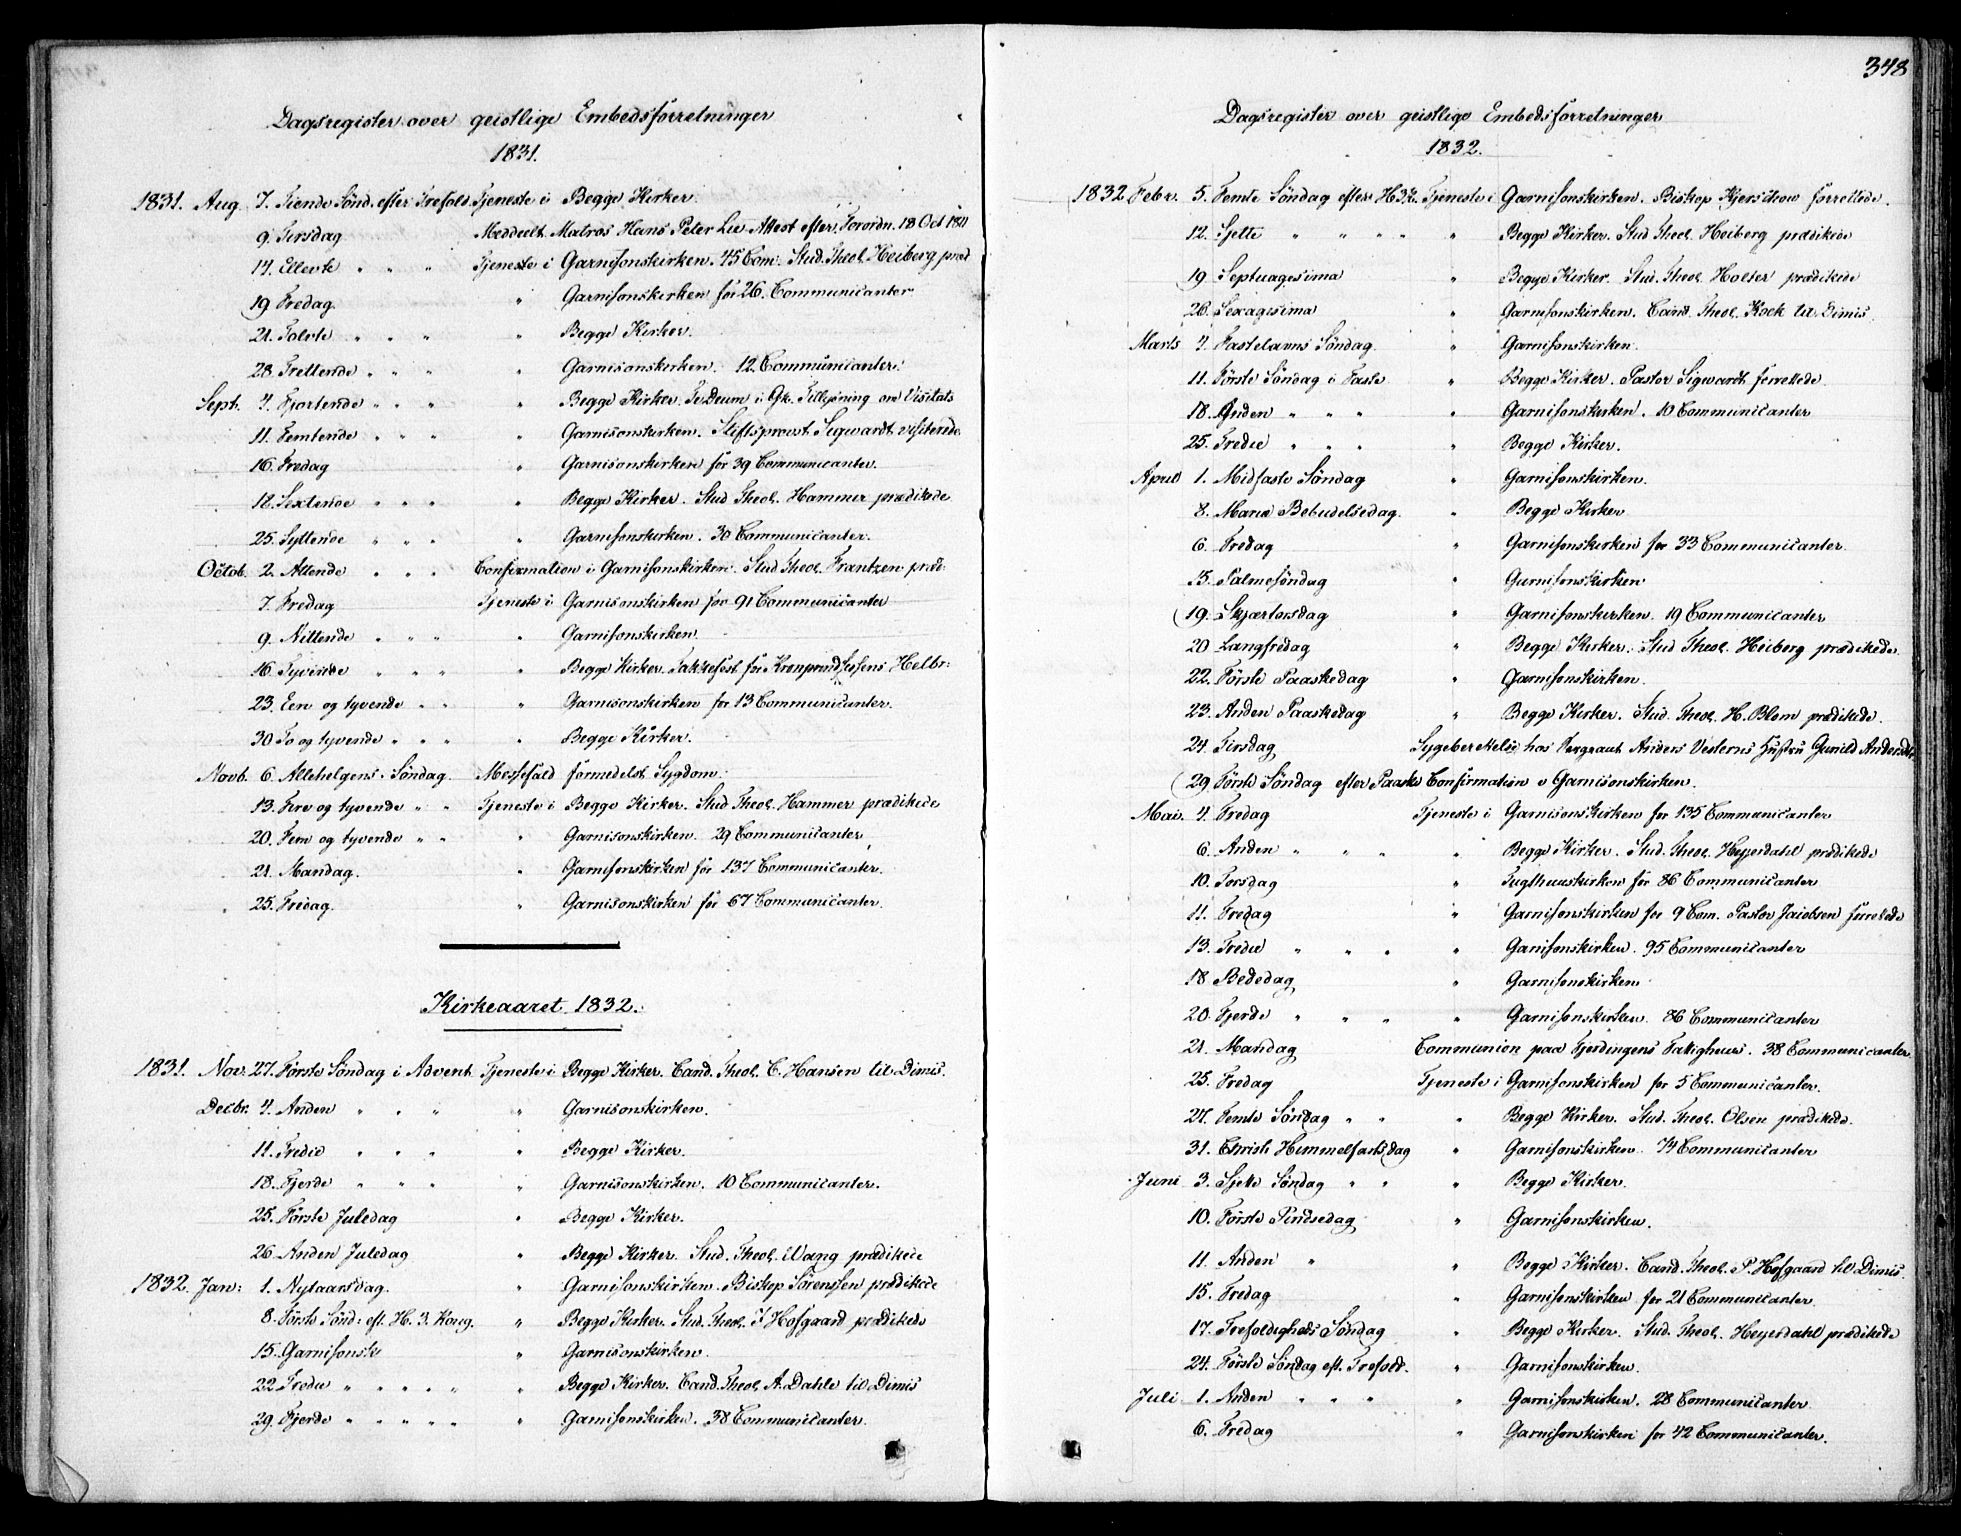 Dagsregister over geistlige Embedsforretninger
1831.
1831. Aug. 7. Tiende Sønd. efter Trefold. Tjeneste i Begge Kirker.
9. Tirsdag Meddeelt Matros Hans Peter Lie Attest efter Forordn. 18 Oct 1811
14. Ellevte " " " Tjeneste i Garnisonskirken. 45 Com: Stud. Theol. Heiberg præd
19 Fredag " Garnisonskirken for 26. Communicanter
21. Tolvte " " " " Begge Kirker.
28. Trettende " " " " Garnisonskirken. 12 Communicanter.
Sept. 4. Fjortende " " " " Begge Kirker. Te Deum i Gk. Tillysning om Visitats
11. Femtende " " " " Garnisonskirken. Stiftsprovst Sigwardt visiterede.
16. Fredag " Garnisonskirken for 39 Communicanter.
18. Sextende " " " " Begge Kirker. Stud Theol. Hammer prædikede
25. Syttende " " " " Garnisonskirken. 30 Communicanter.
Octob. 2. Attende " " " Confirmation i Garnisonskirken. Stud Theol. Frantzen præd:
7. Fredag Tjeneste i Garnisonskirken for 91 Communicanter
9. Nittende " " " " Garnisonskirken.
16. Tyvende " " " " Begge Kirker. Takkefest for Kronprindsessens Helbr:
23. Een og tyvende " " " Garnisonskirken for 13 Communicanter.
30 To og tyvende " " " " Begge Kirker.
Novb. 6. Allehelgens Søndag. Messefald formedelst Sygdom.
13. Fire og tyvende " " Tjeneste i Begge Kirker. Stud Theol. Hammer prædikede
20. Fem og tyvende " " " Garnisonskirken. 29 Communicanter
21. Mandag. " Garnisonskirken for 137 Communicanter.
25. Fredag. " Garnisonskirken for 67 Communicanter.
Kirkeaaret 1832.
1831. Nov. 27. Første Søndag i Advent Tjeneste i Begge Kirker. Cand. Theol. C. Hansen til Dimis.
Decbr. 4. Anden " " " " Garnisonskirken.
11. Tredie " " " " Begge Kirker.
18. Fjerde " " " " Garnisonskirken. 10 Communicanter.
25. Første Juledag " Begge Kirker.
26. Anden Juledag " Begge Kirker. Stud. Theol. Wang prædikede
1832. Jan: 1. Nytaarsdag. " Garnisonskirken. Biskop Sørenssen prædikede
8. Første Sønd: eft. H. 3. Kong. " Begge Kirker. Stud. Theol. I Hofgaard prædikede
15. Garnisonsk " Garnisonskirken.
22 Tredie " " " " " " Begge Kirker. Cand. Theol. A. Dahle til Dimis
29. Fjerde " " " " " " Garnisonskirken. 38 Communicanter.
348
Dagsregister over geistlige Embedsforretninger
1832.
1832 Febr. 5. Femte Søndag efter H3K. Tjeneste i Garnisonskirken. Biskop forrettede.
12. Sjette " " " " " Begge Kirker. Stud Theol. Heiberg prædikede
19. Septuagesima " Begge Kirker. Stud. Theol. Holter prædikede
26. Sexagesima " Garnisonskirken. Cand. Theol. Kock til Dimis
Marts 4. Fastelavns Søndag " Garnisonskirken.
11. Første Søndag i Faste " Begge Kirker. Pastor Sigwardt forrettede.
18. Anden " " " " Garnisonskirken. 10 Communicanter
25. Tredie " " " " Begge Kirker.
April 1. Midfaste Søndag " Garnisonskirken.
8. Mariæ Bebudelsedag. " Begge Kirker
6. Fredag " Garnisonskirken for 33 Communicanter.
15. Palmesøndag " Garnisonskirken
19. Skjærtorsdag " Garnisonskirken. 19 Communicanter
20 Langfredag " Begge Kirker. Stud Theol. Heiberg prædikede.
22. Første Paaskedag " Garnisonskirken.
23. Anden Paaskedag " Begge Kirker. Stud. Theol. H. Blom prædikede.
24. Tirsdag Sygeberettelse hos Sergeant Anders Hustru Gunild Andersdtr
29 Første Søndag efter Paaske Confirmation i Garnisonskirken.
Mai 4. Fredag Tjeneste i Garnisonskirken for 135 Communicanter
6. Anden " " " " Begge Kirker. Stud. Theol. Heyerdahl prædikede
10. Torsdag " Tugthuuskirken for 86 Communicanter
11. Fredag " Garnisonskirken for 9 Com. Pastor Jacobsen forrettede
13. Tredie " " " " Garnisonskirken. 95 Communicanter
18 Bededag " Garnisonskirken
20. Fjerde " " " " Garnisonskirken. 86 Communicanter
21. Mandag Communion paa Fjerdingens Fattighuus. 38 Communicanter
25. Fredag Tjeneste i Garnisonskirken for 5 Communicanter.
27. Femte Søndag " " " Begge Kirker. Stud. Theol. Olsen prædikede.
31. Christi Himmelfartsdag " Garnisonskirken. 74 Communicanter
Juni 3. Sjette Søndag " " " Begge Kirker.
10. Første Pindsedag " Garnisonskirken.
11. Anden " " Begge Kirker. Cand. Theol. P. Hofgaard til Dimis.
15. Fredag " Garnisonskirken for 21 Communicanter
17. Trefoldigheds Søndag " Begge Kirker. Stud. Theol. Heyerdahl prædikede
24. Første Søndag eft. Trefold. " Garnisonskirken.
Juli 1. Anden " " " " Garnisonskirken. 28 Communicanter
6. Fredag " Garnisonskirken for 42 Communicanter.